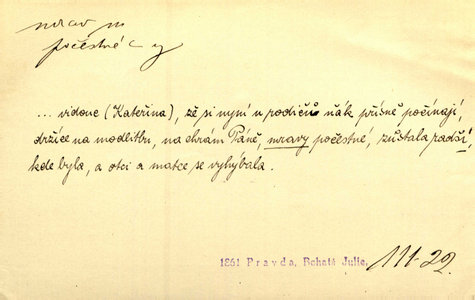 mrav m
počestné y
... vidouc (Kateřina), že si nyní u rodičů ňák přísně počínají,
držíce na modlitbu, na chrám Páně, mravy počestné, zůstala radši,
kde byla, a otci a matce se vyhýbala.
1861 Pravda, Bohatá Julie, 111-22